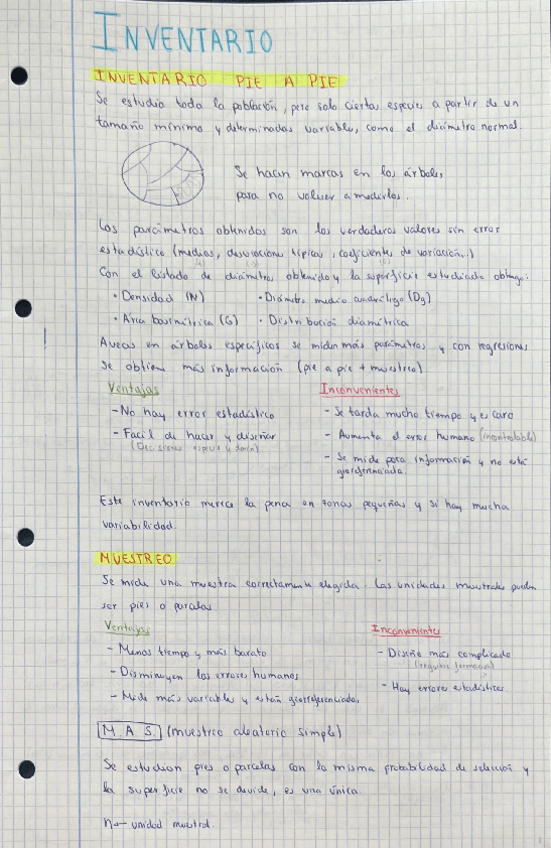 INVENTARIO
INVENTARIO PIE A PIE
Se estudia toda la población, pero solo ciertas especies a partir de un
tamaño mínimo y determinadas variables, como el diámetro normal.
Se hacen marcas en los árboles,
para no volver a medirlos.
Los parámetros obtenidos son los verdaderos valores sin error
estadístico (medias, desviaciones típicas, coeficientes de variación...)
Con el listado de diámetros obtenido y la superficie estudiada obtengo:
· Densidad (N)
· Diámetro medio cuadrático (Dg)
· Área basimétrica (G)
· Distribución diamétrica
A veces en árboles específicos se miden más parámetros y con regresiones
se obtiene más información (pie a pie + muestreo)
Ventajas
Inconvenientes
- No hay error estadístico
- Se tarda mucho tiempo y es caro
- Facil de hacer y diseñar
- Aumenta el error humano (incontrolable)
- Se mide poca información y no está
georeferenciada.
Este inventario merece la pena en zonas pequeñas y si hay mucha
variabilidad.
MUESTREO
Se mide una muestra correctamente elegida. Las unidades muestrales pueden
ser pies o parcelas
Ventajas
Inconvenientes
- Menos tiempo y más barato
- Diseño más complicado
- Disminuyen los errores humanos
- Hay errores estadísticos
- Mide más variables y están georeferenciadas.
M.A.S. (muestreo aleatorio simple)
Se estudian pies o parcelas con la misma probabilidad de selección y
la superficie no se divide, es una única.
n← unidad muestral.